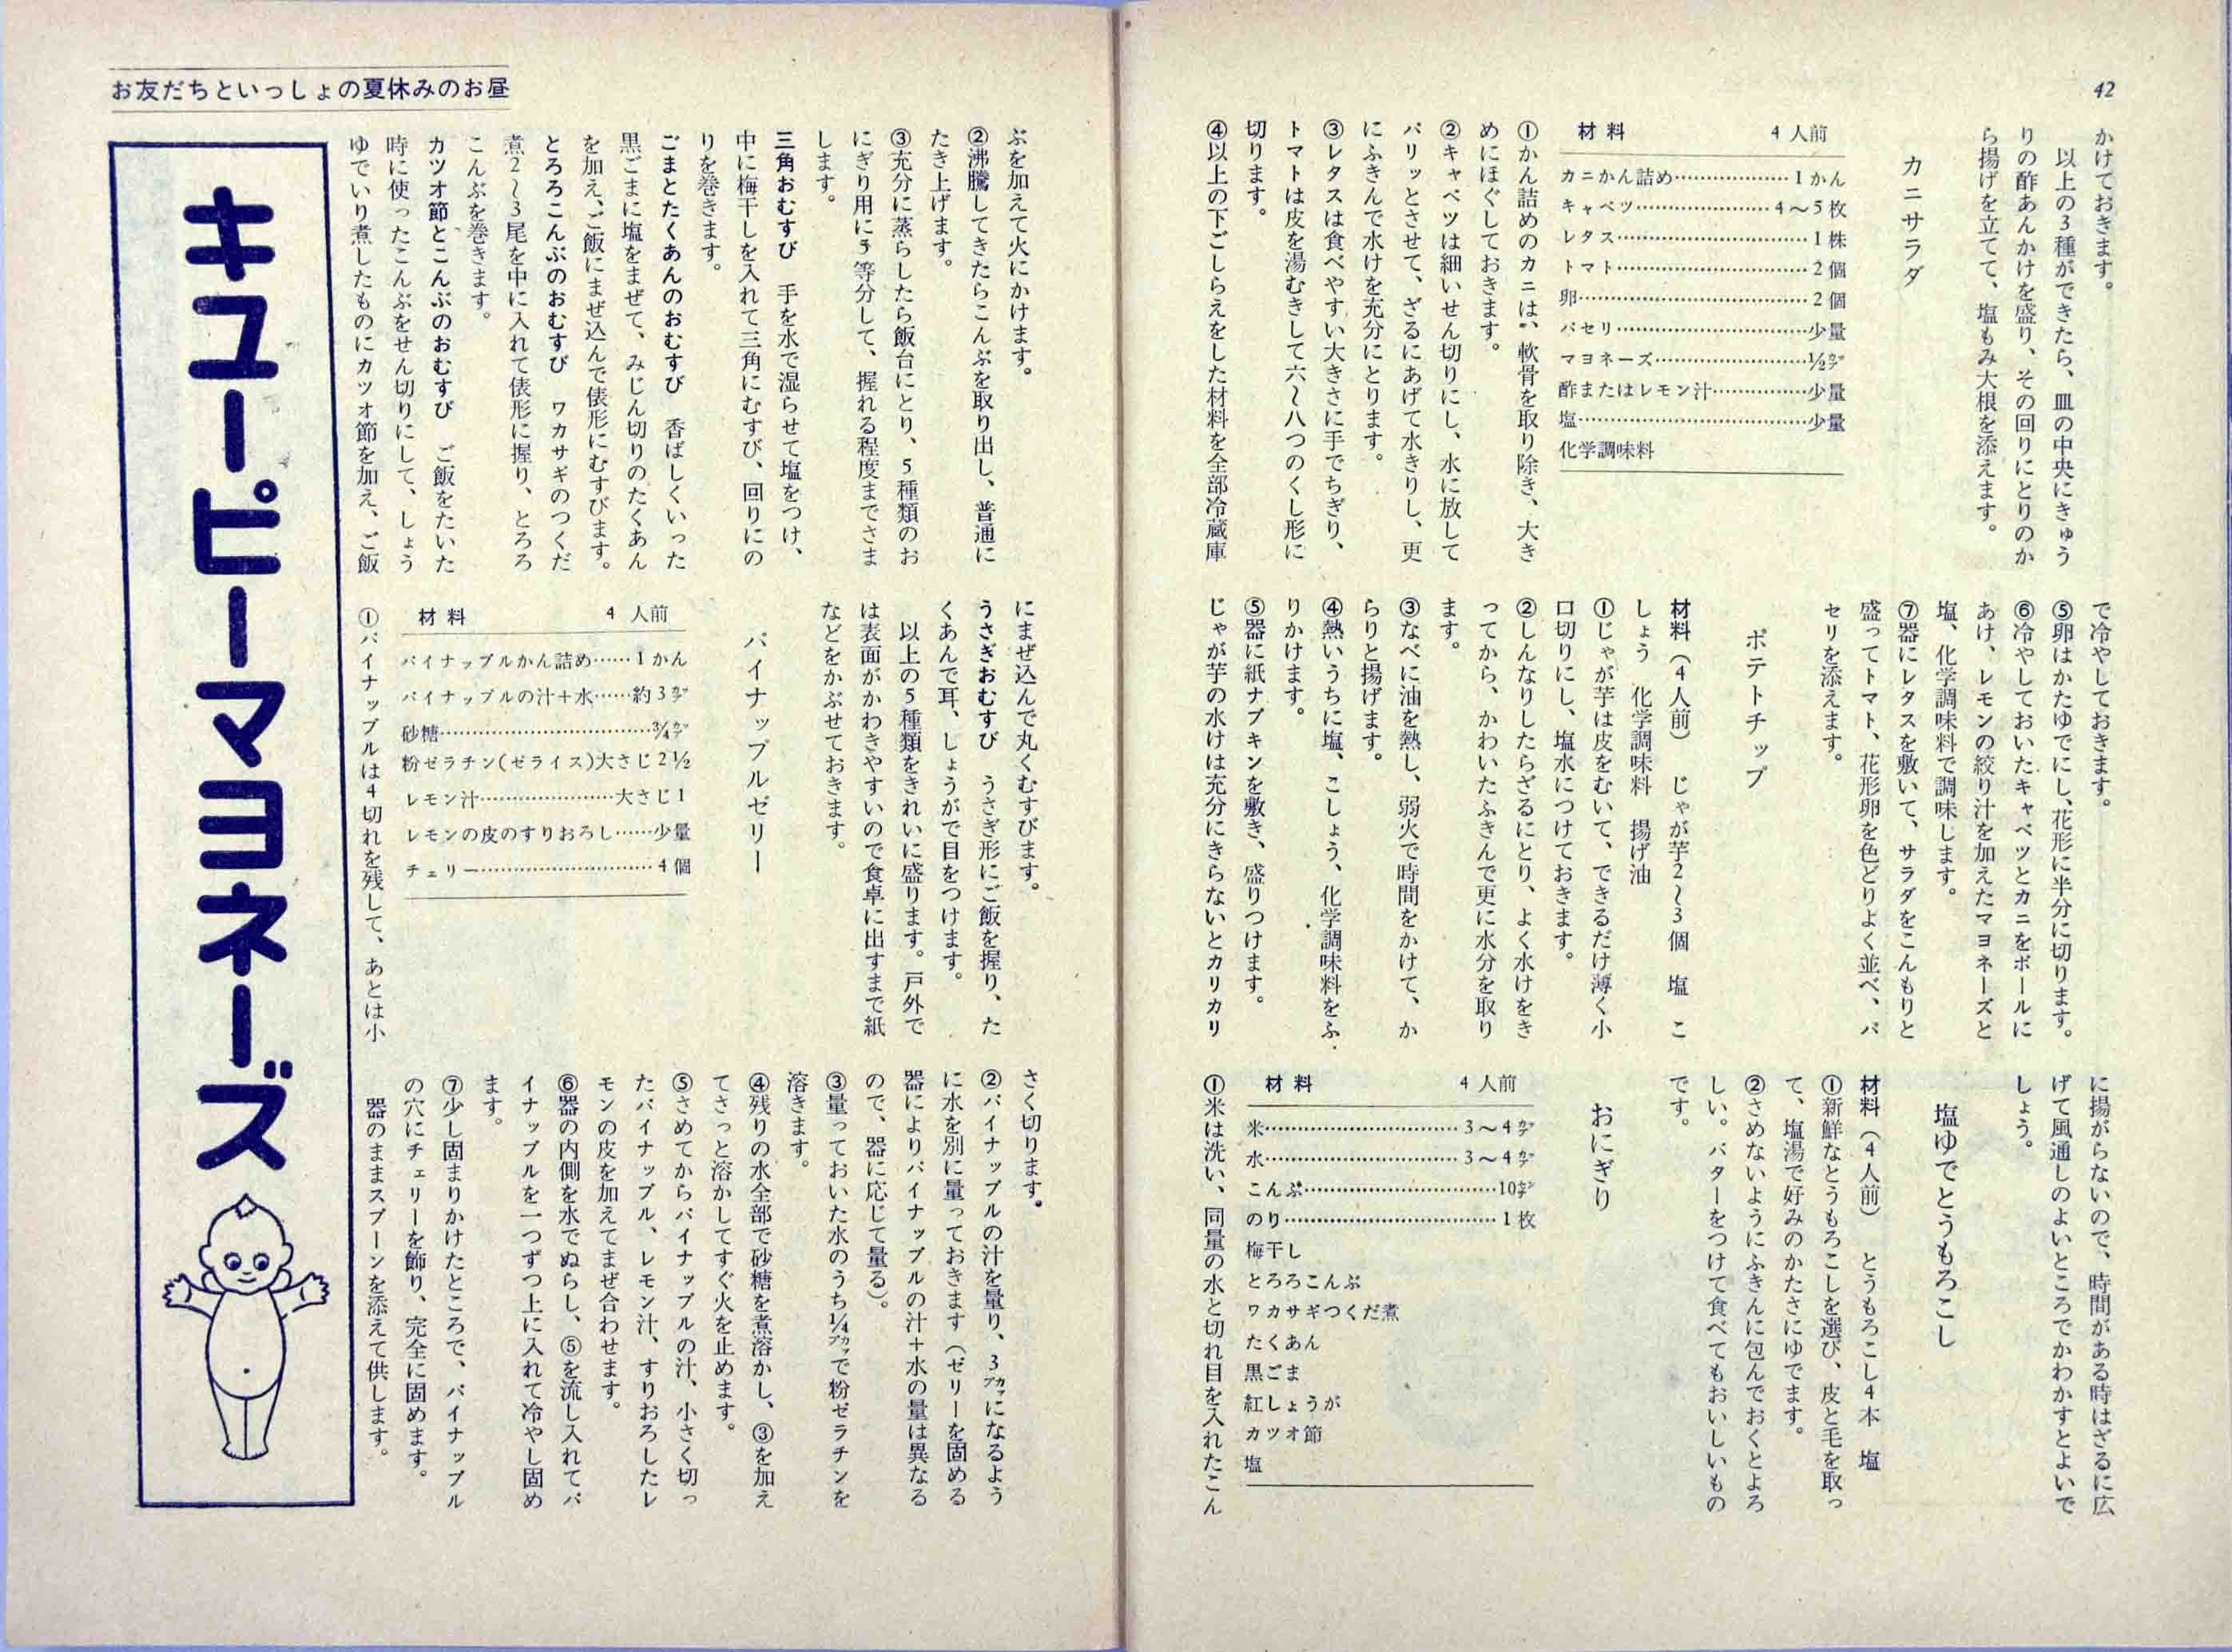 42
かけておきます。
以上の3種ができたら、皿の中央にきゅう
りの酢あんかけを盛り、その回りにとりのか
ら揚げを立てて、塩もみ大根を添えます。
カニサラダ
材料 4人前
カニかん詰め………………1かん
キャベツ…………………4〜5枚
レタス…………………………1株
トマト…………………………2個
卵………………………………2個
パセリ…………………………少量
マヨネーズ……………………½カップ
酢またはレモン汁……………少量
塩………………………………少量
化学調味料
①かん詰めのカニは、軟骨を取り除き、大き
めにほぐしておきます。
②キャベツは細いせん切りにし、水に放して
パリッとさせて、ざるにあげて水きりし、更
にふきんで水けを充分にとります。
③レタスは食べやすい大きさに手でちぎり、
トマトは皮を湯むきして六〜八つのくし形に
切ります。
④以上の下ごしらえをした材料を全部冷蔵庫
で冷やしておきます。
⑤卵はかたゆでにし、花形に半分に切ります。
⑥冷やしておいたキャベツとカニをボールに
あけ、レモンの絞り汁を加えたマヨネーズと
塩、化学調味料で調味します。
⑦器にレタスを敷いて、サラダをこんもりと
盛ってトマト、花形卵を色どりよく並べ、パ
セリを添えます。
ポテトチップ
材料(4人前) じゃが芋2〜3個 塩 こ
しょう 化学調味料 揚げ油
①じゃが芋は皮をむいて、できるだけ薄く小
口切りにし、塩水につけておきます。
②しんなりしたらざるにとり、よく水けをき
ってから、かわいたふきんで更に水分を取り
ます。
③なべに油を熱し、弱火で時間をかけて、か
らりと揚げます。
④熱いうちに塩、こしょう、化学調味料をふ
りかけます。
⑤器に紙ナプキンを敷き、盛りつけます。
じゃが芋の水けは充分にきらないとカリカリ
に揚がらないので、時間がある時はざるに広
げて風通しのよいところでかわかすとよいで
しょう。
塩ゆでとうもろこし
材料(4人前) とうもろこし4本 塩
①新鮮なとうもろこしを選び、皮と毛を取っ
て、塩湯で好みのかたさにゆでます。
②さめないようにふきんに包んでおくとよろ
しい。バターをつけて食べてもおいしいもの
です。
おにぎり
材料 4人前
米…………………………3〜4カップ
水…………………………3〜4カップ
こんぶ…………………………10センチ
のり……………………………1枚
梅干し
とろろこんぶ
ワカサギつくだ煮
たくあん
黒ごま
紅しょうが
カツオ節
塩
①米は洗い、同量の水と切れ目を入れたこん
お友だちといっしょの夏休みのお昼
ぶを加えて火にかけます。
②沸騰してきたらこんぶを取り出し、普通に
たき上げます。
③充分に蒸らしたら飯台にとり、5種類のお
にぎり用に5等分して、握れる程度までさま
します。
三角おむすび 手を水で湿らせて塩をつけ、
中に梅干しを入れて三角にむすび、回りにの
りを巻きます。
ごまとたくあんのおむすび 香ばしくいった
黒ごまに塩をまぜて、みじん切りのたくあん
を加え、ご飯にまぜ込んで俵形にむすびます。
とろろこんぶのおむすび ワカサギのつくだ
煮2〜3尾を中に入れて俵形に握り、とろろ
こんぶを巻きます。
カツオ節とこんぶのおむすび ご飯をたいた
時に使ったこんぶをせん切りにして、しょう
ゆでいり煮したものにカツオ節を加え、ご飯
にまぜ込んで丸くむすびます。
うさぎおむすび うさぎ形にご飯を握り、た
くあんで耳、しょうがで目をつけます。
以上の5種類をきれいに盛ります。戸外で
は表面がかわきやすいので食卓に出すまで紙
などをかぶせておきます。
パイナップルゼリー
材料 4人前
パイナップルかん詰め……1かん
パイナップルの汁+水……約3カップ
砂糖……………………………¾カップ
粉ゼラチン(ゼライス)大さじ2½
レモン汁…………………大さじ1
レモンの皮のすりおろし……少量
チェリー………………………4個
①パイナップルは4切れを残して、あとは小
さく切ります。
②パイナップルの汁を量り、3カップになるよう
に水を別に量っておきます(ゼリーを固める
器によりパイナップルの汁+水の量は異なる
ので、器に応じて量る)。
③量っておいた水のうち¼カップで粉ゼラチンを
溶きます。
④残りの水全部で砂糖を煮溶かし、③を加え
てさっと溶かしてすぐ火を止めます。
⑤さめてからパイナップルの汁、小さく切っ
たパイナップル、レモン汁、すりおろしたレ
モンの皮を加えてまぜ合わせます。
⑥器の内側を水でぬらし、⑤を流し入れてパ
イナップルを一つずつ上に入れて冷やし固め
ます。
⑦少し固まりかけたところで、パイナップル
の穴にチェリーを飾り、完全に固めます。
器のままスプーンを添えて供します。
キユーピーマヨネーズ